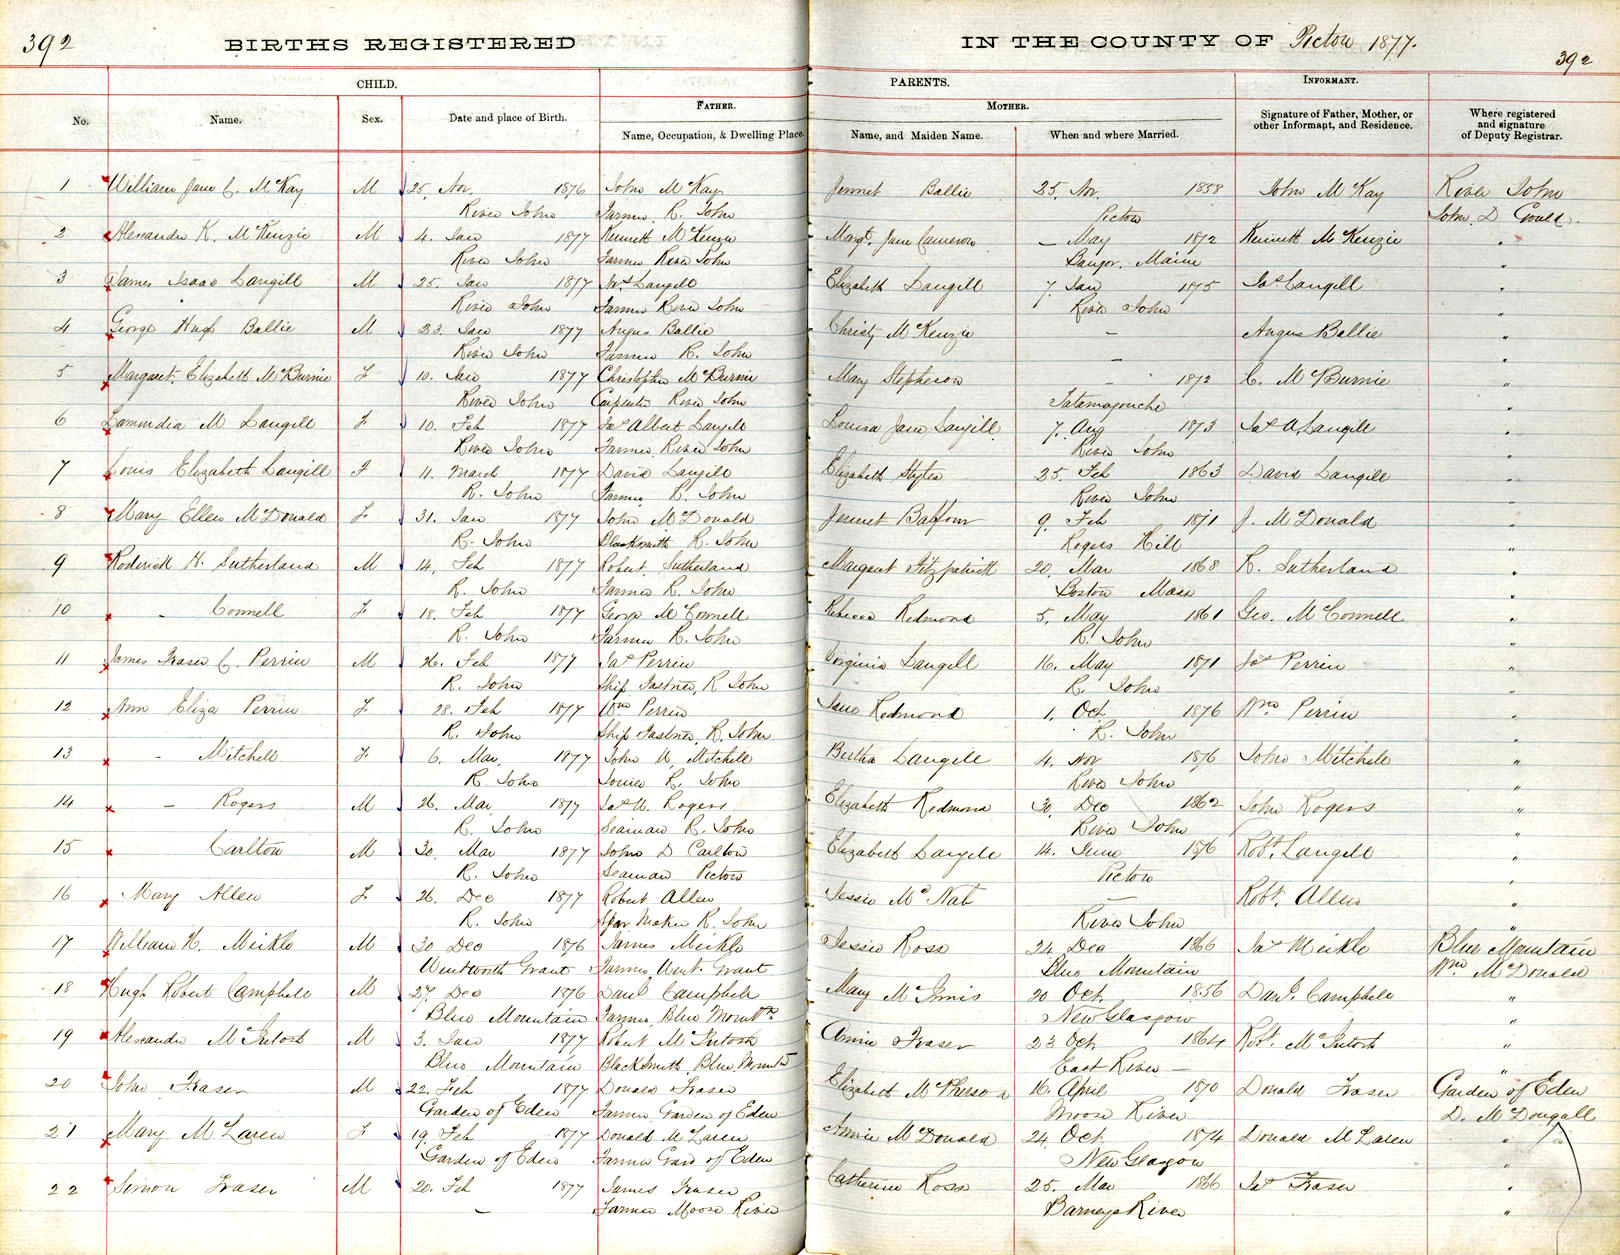 392
BIRTHS REGISTERED
IN THE COUNTY OF Pictou 1877.
392
CHILD.
PARENTS.
INFORMANT.
FATHER.
MOTHER.
No.
Name.
Sex.
Date and place of Birth.
Name, Occupation, & Dwelling Place.
Name, and Maiden Name.
When and where Married.
Signature of Father, Mother, or
other Informant, and Residence.
Where registered
and signature
of Deputy Registrar.
1 William Jane C. McKay M 25. Nov. 1876 John McKay Jennet Ballie 25. Nov. 1858 John McKay River John
River John Farmer R. John Pictou John D Gould.
2 Alexander K. McKenzie M 4. Jan 1877 Kennett McKenzie Margt. Jane Cameron — May 1872 Kennett McKenzie "
River John Farmer River John Bangor. Maine "
3 James Isaac Langill M 25. Jan 1877 Jas Langill Elizabeth Langill 7. Jan 1875 Jas Langill "
River John Farmer River John River John "
4 George Hugh Ballie M 23. Jan 1877 Angus Ballie Christy McKenzie — Angus Ballie "
River John Farmer R. John — "
5 Margaret. Elizabeth McBurnie F 10. Jan 1877 Christopher McBurnie Mary Stepheson - 1872 C. McBurnie "
River John Carpenter River John Tatamagouche "
6 M Langill F 10. Feb 1877 Jas Albert Langill Louisa Jane Langill. 7. Aug 1873 Jas A. Langill "
River John Farmer, River John River John "
7 Louis Elizabeth Langill F 11. March 1877 David Langill Elizabeth Styles 25. Feb 1863 David Langill "
R. John Farmer R. John River John "
8 Mary Ellen McDonald F. 31. Jan 1877 John McDonald Jennet Balfour 9. Feb 1871 J. McDonald "
R. John Blacksmith R. John Rogers Hill "
9 Roderick H. Sutherland M 14. Feb 1877 Robert Sutherland Margaret Fitzpatrick 20. Mar 1868 R. Sutherland "
R. John Farmer R. John Boston Mass "
10 - Connell F 18. Feb 1877 George McConnell Rebecca Redmond 5. May 1861 Geo. McConnell "
R. John Farmer R. John R. John "
11 James Fraser C. Perrin M 26. Feb 1877 Jas Perrin Virginia Langill 16. May 1871 Jas Perrin "
R. John Ship Fastner, R John R. John "
12 Ann Eliza Perrin F. 28. Feb 1877 Wm Perrin Jane Redmond 1. Oct 1876 Wm Perrin "
R. John Ship Fastner, R. John R. John "
13 - Mitchell F 6. Mar. 1877 John W. Mitchell Bertha Langill 4. Nov 1876 John Mitchell "
R John R. John River John "
14 — Rogers M 26. Mar. 1877 Jas W. Rogers Elizabeth Redmond 30. Dec 1862 John Rogers "
R. John Seaman R. John River John "
15 Carlton M 30. Mar 1877 John D Carlton Elizabeth Langill 14. June 1876 Robt. Langill "
R. John Seaman Pictou Pictou "
16 Mary Allen F 26. Dec 1877 Robert Allen Jessie McNab — Robt. Allen "
R. John Spar Maker R. John River John "
17 William N. Meikle M 30 Dec 1876 James Meikle Jessie Ross 24 Dec 1866 Jas Meikle Blue Mountain
Wentworth Grant Farmer Went. Grant Blue Mountain Wm McDonald
18 Hugh Robert Campbell M 27. Dec 1876 Danl Campbell Mary McInnis 20 Oct 1856 Danl. Campbell "
Blue Mountain Farmer, Blue Mountn. New Glasgow "
19 Alexander McIntosh M 3. Jan 1877 Robert McIntosh Annie Fraser 23 Oct 1864 Robt. McIntosh "
Blue Mountain Blacksmith, Blue Mountn East River — "
20 John Fraser M 22. Feb 1877 Donald Fraser Elizabeth McPherson 16. April 1870 Donald Fraser Garden of Eden
Garden of Eden Farmer Garden of Eden Moose River D. McDougall
21 Mary McLaren F 19. Feb 1877 Donald McLaren Annie McDonald 24. Oct 1874 Donald McLaren "
Garden of Eden Farmer Gard of Eden New Glasgow "
22 Simon Fraser M 20. Feb 1877 James Fraser Catherine Ross 25. Mar 1866 Jas Fraser "
— Farmer Moose River Barneys River "